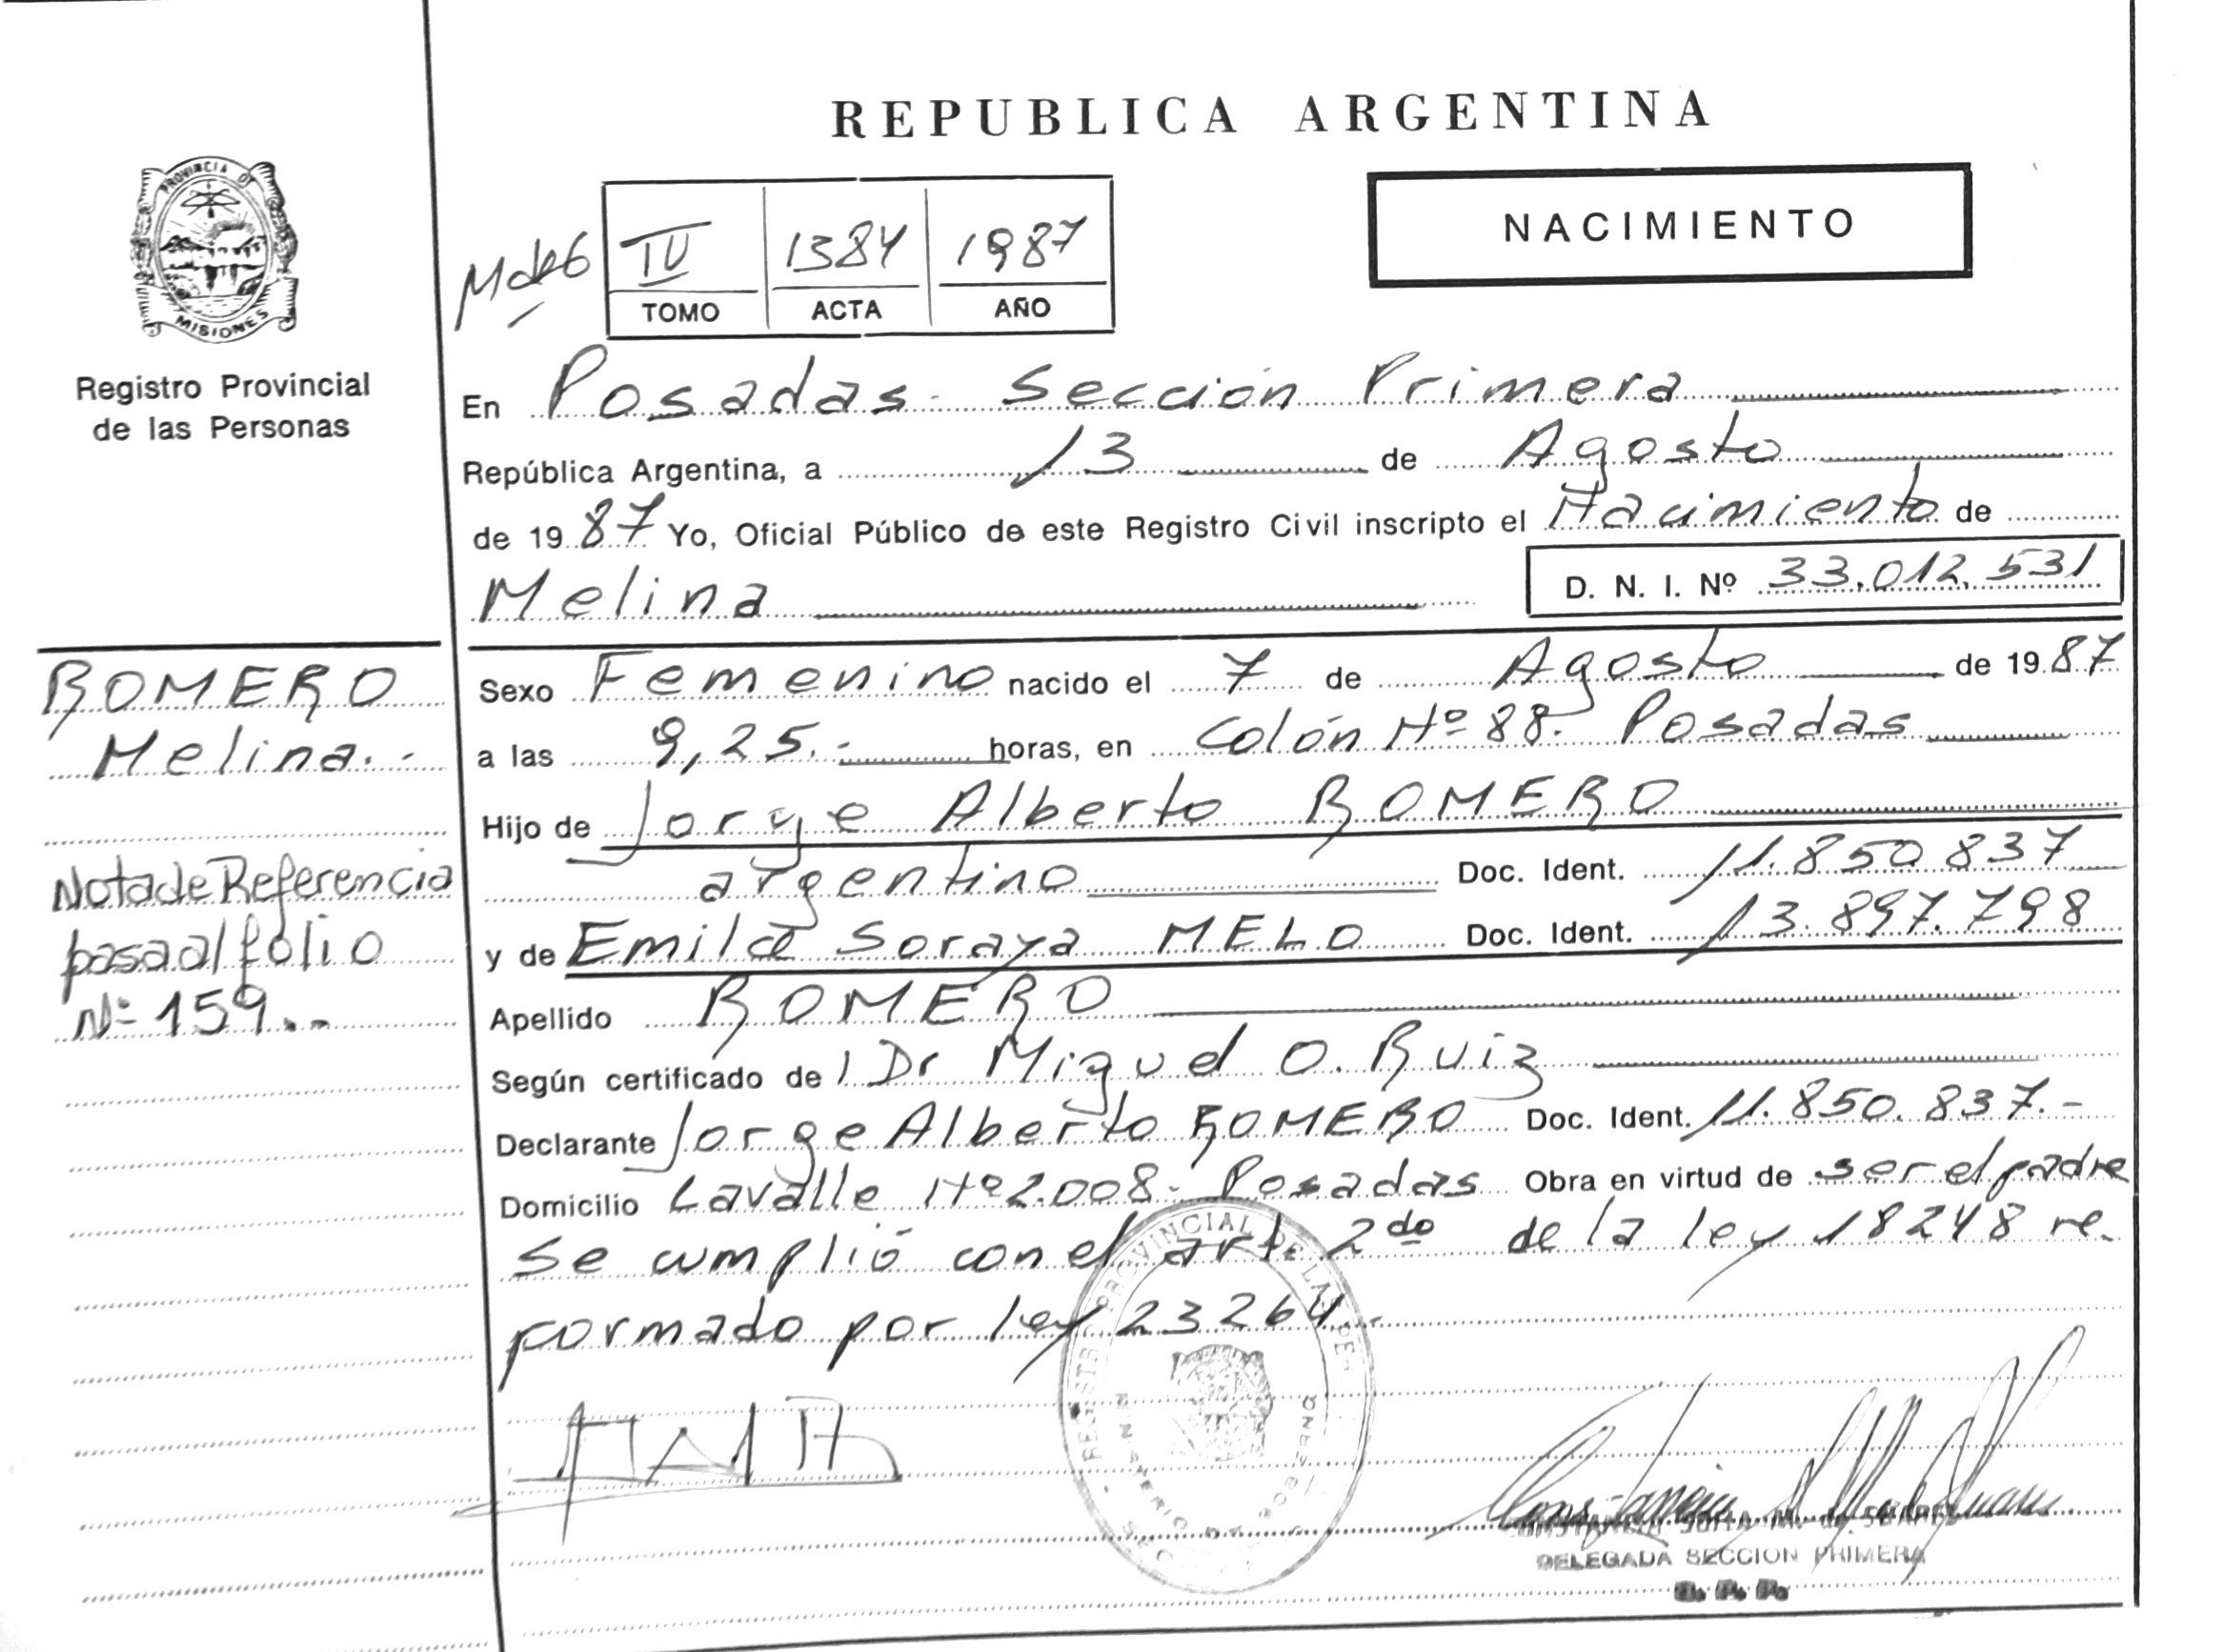 REPUBLICA ARGENTINA
PROVINCIA DE
MISIONES
Registro Provincial
de las Personas
NACIMIENTO
IV 1384 1987
TOMO ACTA AÑO
En Posadas - Sección Primera
República Argentina, a 13 de Agosto
de 1987 Yo, Oficial Público de este Registro Civil inscripto el Nacimiento de
Melina
D. N. I. Nº 33.012.531
ROMERO
Melina.-
Nota de Referencia
pasa al folio
Nº 159.-
Sexo Femenino nacido el 7 de Agosto de 1987
a las 9,25.- horas, en Colón Nº 88. Posadas
Hijo de Jorge Alberto ROMERO
argentino Doc. Ident. 11.850.837
y de Emilce Soraya MELO Doc. Ident. 13.897.798
Apellido ROMERO
Según certificado del Dr Miguel O. Ruiz
Declarante Jorge Alberto ROMERO Doc. Ident. 11.850.837.-
Domicilio Lavalle Nº 2.008- Posadas Obra en virtud de ser el padre
Se cumplió con el art. 2do de la ley 18248 re-
formado por ley 23264.-
DELEGADA SECCION PRIMERA